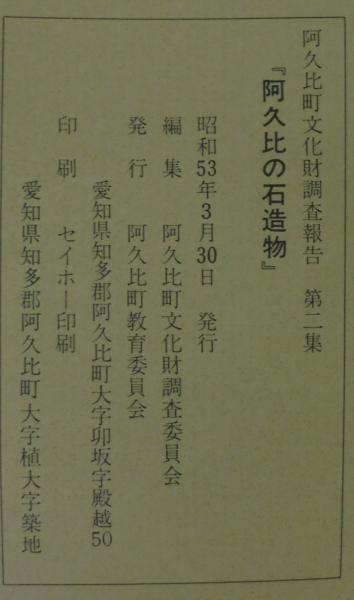 阿久比町文化財調査報告　第二集
『阿久比の石造物』
昭和53年3月30日　発行
編集　阿久比町文化財調査委員会
発行　阿久比町教育委員会
愛知県知多郡阿久比町大字卯坂字殿越50
印刷　セイホー印刷
愛知県知多郡阿久比町大字植大字築地